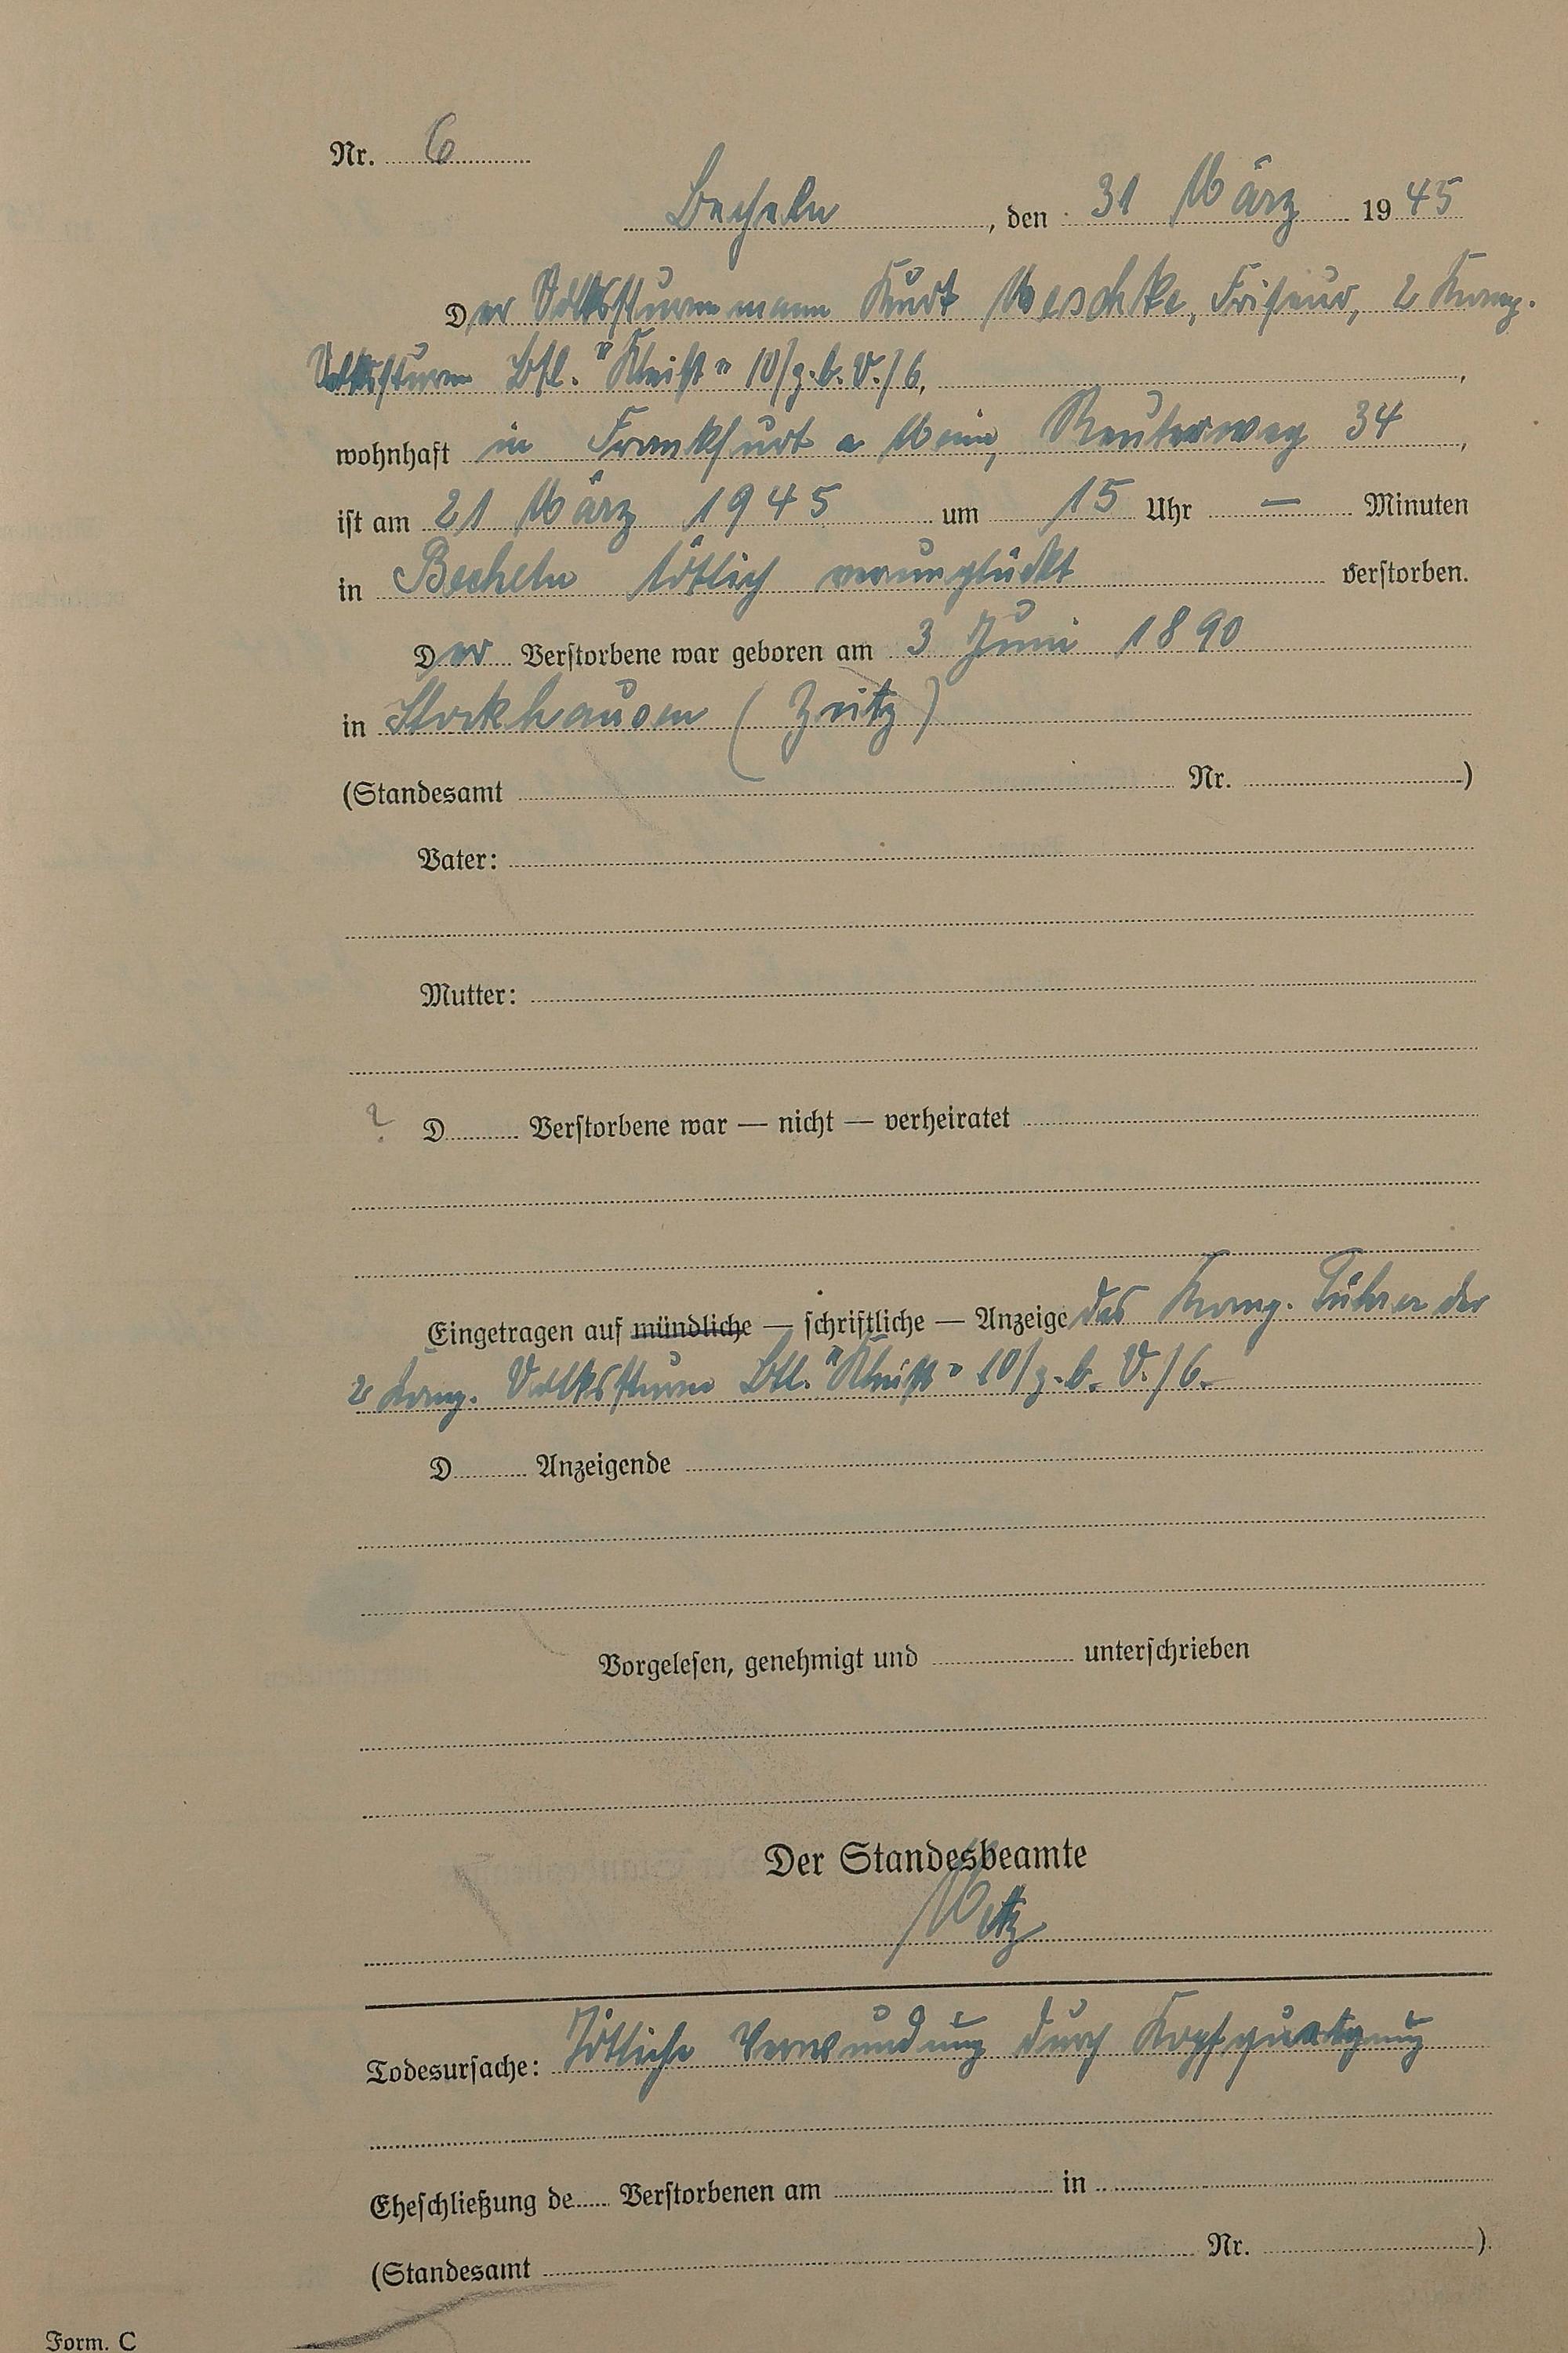 Nr. 6
Becheln, den 31 März 1945
Der Volkssturmmann Kurt Meschke, Friseur, 2 Komp.
Volkssturm Btl. "Kleist" 10/z.b.V./6,
wohnhaft in Frankfurt a Main, Reuterweg 34,
ist am 21 März 1945 um 15 Uhr — Minuten
in Becheln tötlich verunglückt verstorben.
Der Verstorbene war geboren am 3 Juni 1890
in Stockhausen (Zeitz)
(Standesamt Nr. )
Vater:
Mutter:
? D Verstorbene war — nicht — verheiratet
Eingetragen auf mündliche — schriftliche — Anzeige des Komp. Führer der
2 Komp. Volkssturm Btl. "Kleist" 10/z.b.V./6.
D Anzeigende
Vorgelesen, genehmigt und unterschrieben
Der Standesbeamte
Metz
Todesursache: Tötliche Verwundung durch Kopfquetschung
Eheschließung de Verstorbenen am in
(Standesamt Nr. )
Form. C